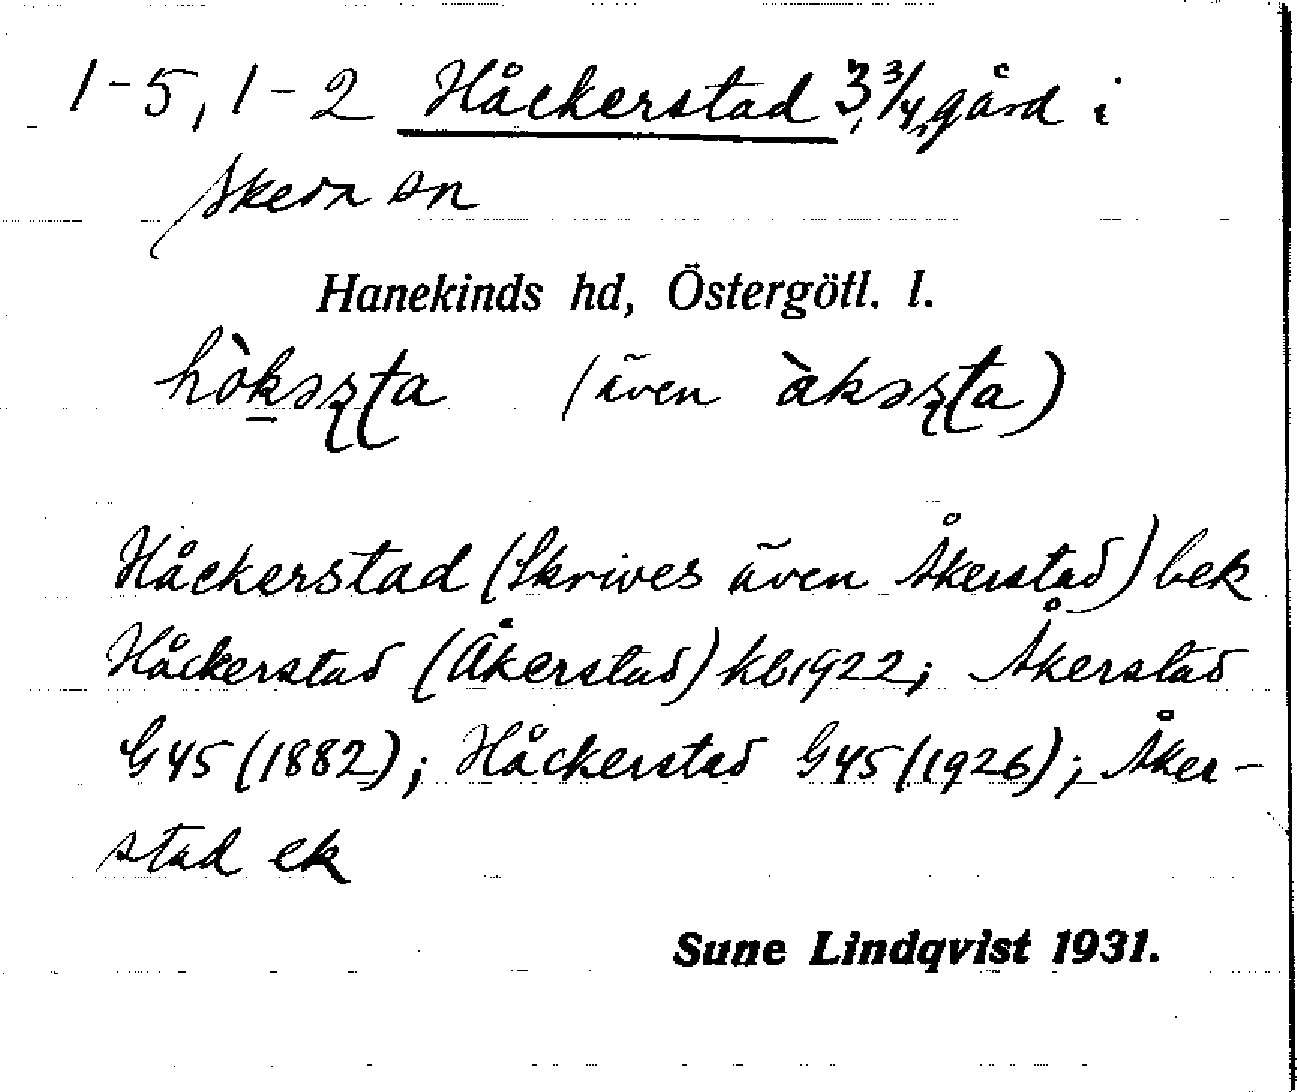 1-5, 1-2 Håckerstad 3 3/4 gård i
Skeda sn
Hanekinds hd, Östergötl. l.
hòkəʂʈa (även àkəʂʈa)
Håckerstad (Skrives även Åkerstad) bek
Håckerstad (Åkerstad) kb1922; Åkerstad
G45 (1882); Håckerstad G45 (1926); Åker-
stad ek
Sune Lindqvist 1931.